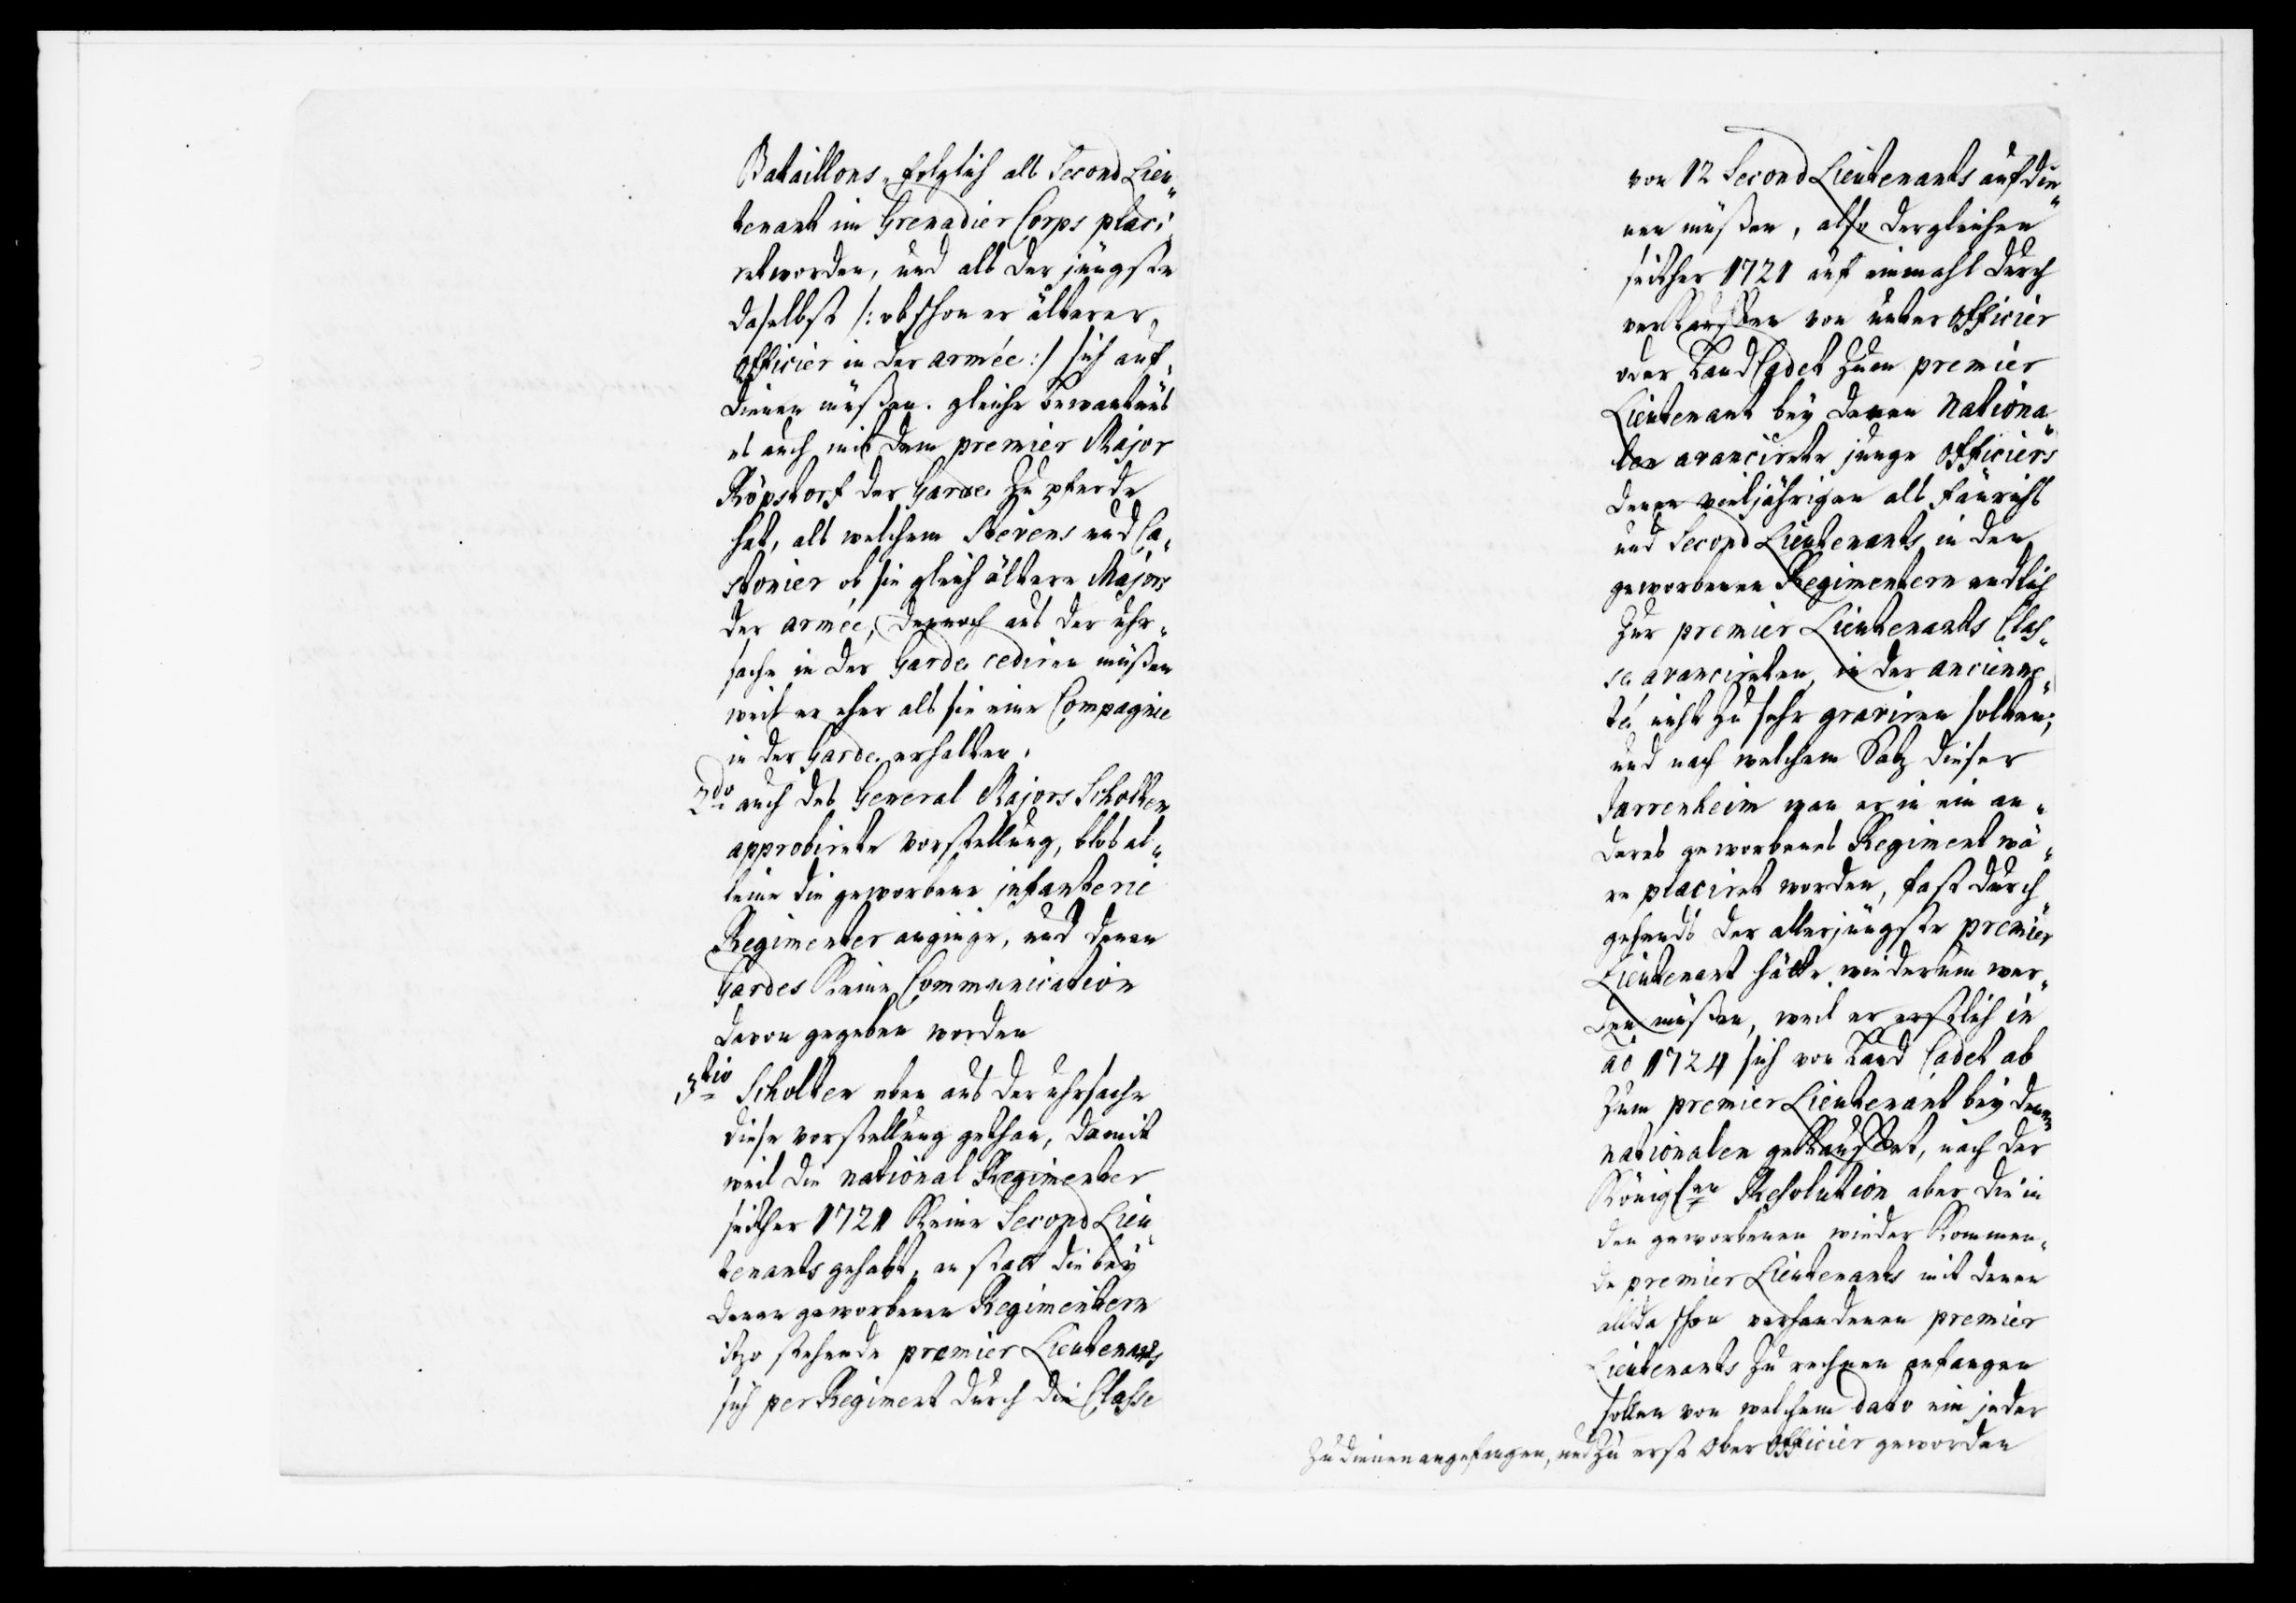 Bataillons, folglich als Second Lieu„
tenant im Grenadier Corps placi„
ret worden, und als der jüngste
daselbst /: obschon er älterer
Officier in der armée :/ sich auf„
dienen müßen. gleiche bewantnüs
es auch mit dem premier Major
Röpstorf der Garde zu pferde
hat, als welchem Stevens und Ca„
stonier ob sie gleich ältere Majors
der armée, dennoch aus der uhr„
sache in der Garde cediren müßen
weil er eher als sie eine Compagnie
in der Garde erhalten.
2do auch des General Majors Scholten
approbirete vorstellung, blos al„
leine die geworbene infanterie
Regimenter anginge, und denen
Gardes Keine Communication
davon gegeben worden
3tio Scholten eben aus der uhrsache
diese vorstellung gethan, damit
weil die national Regimenter
seither 1721 Keine Second Lieu„
tenants gehabt, an statt die bey
denen geworbenen Regimentern
itzo stehende premier Lieutenants
sich per Regiment durch die Classe
von 12 Second Lieutenants auf die„
nen müßen, also dergleichen
seither 1721 auf einmahl durch
verkauffen von unter Officier
oder Land Cadet zum premier
Lieutenant bey denen Nationa„
len avancirete junge Officiers
denen vieljährigen als fänrichs
und Second Lieutenants in den
geworbenen Regimentern endlich
zur premier Lieutenants Clas„
se avancireten, in der ancienne„
té nicht zu sehr graviren solten;
und nach welchem Satz dieser
Darrenheim wan er in ein an„
deres geworbenes Regiment wä„
re placiret worden, fast durch„
gehends der allerjüngste premier
Lieutenant hätte wiederum wer„
den müßen, weil er erstlich in
aō 1724 sich von Land Cadet ab
zum premier Lieutenant bey denen
nationalen gekauffet, nach der
Königlen Resolution aber die in
den geworbenen wieder Kommen„
de premier Lieutenants mit denen
allda schon vorhandenen premier
Lieutenants zu rechnen anfangen
sollen von welchem dato ein jeder
zu dienen angefangen, und zu erst Ober Officier geworden